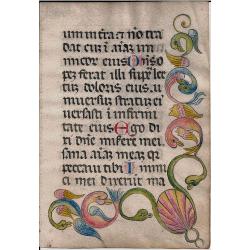 um in tr̄a ⁊ nō tra
dat eūʒ ī aīaʒ ini
micoꝝ eius Dn̄s o
pē ferat illi sup̄ lec
tuʒ doloris eius. u
niuersuʒ stratuʒ ei
uersasti ī infirmi
tate eius Ego di
xi dn̄e miserere mei
sana aīaʒ meaʒ q̄
peccaui tibi Inimi
ci mei dixerūt ma